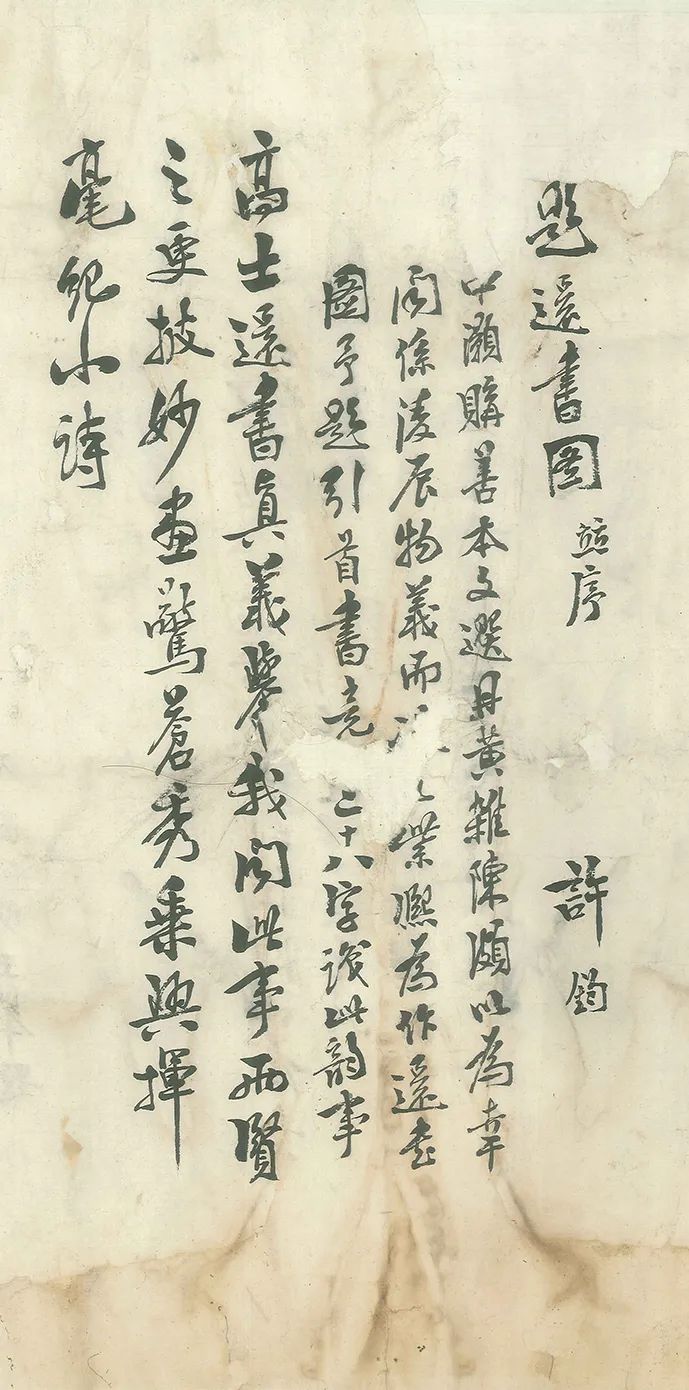 題還書图 並序 許鈞
中灝購善本文選丹黃雜陳頗以為幸
閱係凌辰物義而 之業熙為作還書
圖予題引首書竟 二十八字識此韻事
高士還書真義舉我聞此事两賢
之更披妙畫驚蒼秀乘興揮
毫紀小詩